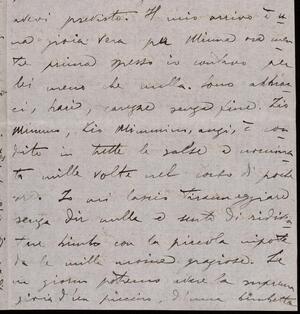 avevi previsto. Il mio arrivo è u
na gioia vera per Mimma ora men
tre prima spesso io contavo per
lei meno che nulla. Sono abbrac
ci, baci, carezze senza fine. Zio
Mimmo, Zio Mimmino, anzi, è con
dito in tutte le salse e nomina
to mille volte nel corso di poche
ore. Io mi lascio tiranneggiare
senza dir nulla e
tare bimbo con la piccola nipote
da le mille moine graziose. Se
un giorno potremo avere la suprema
gioia d'un piccino, d'una bimbetta